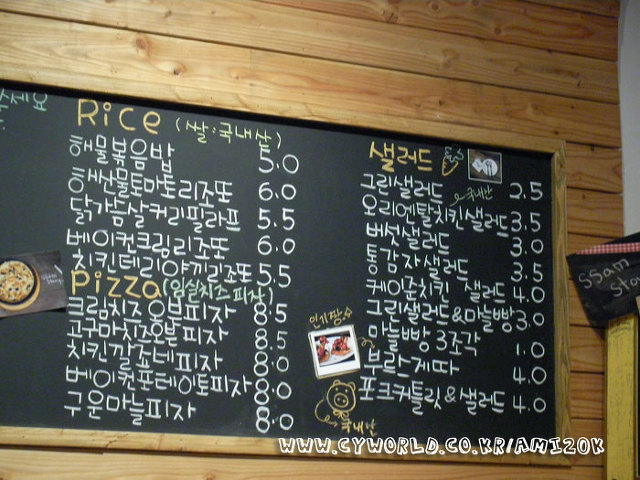 주세요
Rice (쌀:국내산)
해물볶음밥 5.0
해산물토마토리조또 6.0
닭가슴살커리필라프 5.5
베이컨크림리조또 6.0
치킨데리야끼리조또 5.5
Pizza (임실치즈피자)
크림치즈오븐피자 8.5
고구마치즈오븐피자 8.5
치킨깔조네피자 8.0
베이컨포테이토피자 8.0
구운마늘피자 8.0
샐러드
그린샐러드 2.5
국내산
오리엔탈치킨샐러드 3.5
버섯샐러드 3.0
통감자샐러드 3.5
케이준치킨 샐러드 4.0
그린샐러드&마늘빵 3.0
마늘빵 3조각 1.0
부르스게따 4.0
포크커틀릿&샐러드 4.0
인기짱
국내산
Ssam
WWW.CYWORLD.CO.KR/AMI20K